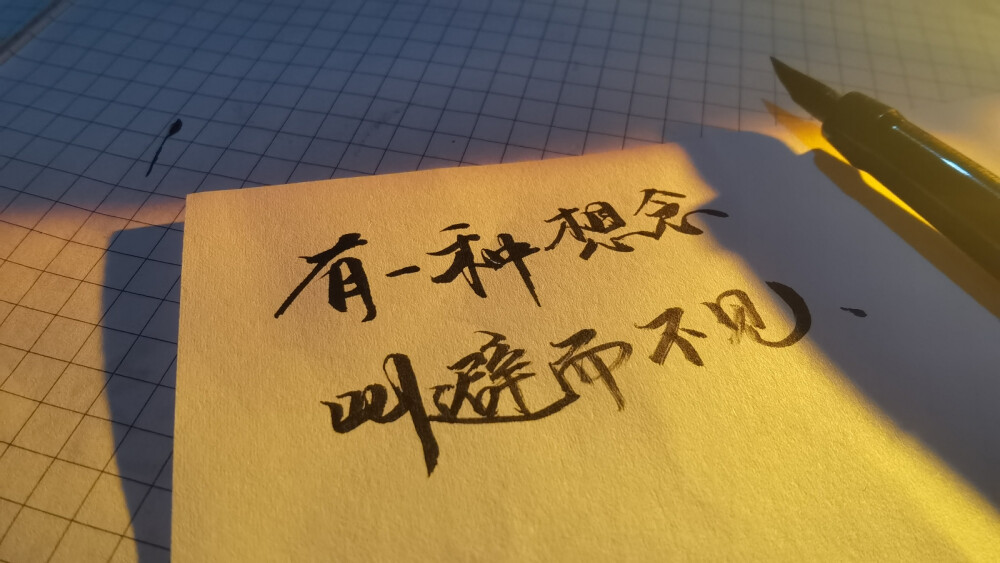 有一种想念
叫避而不见.